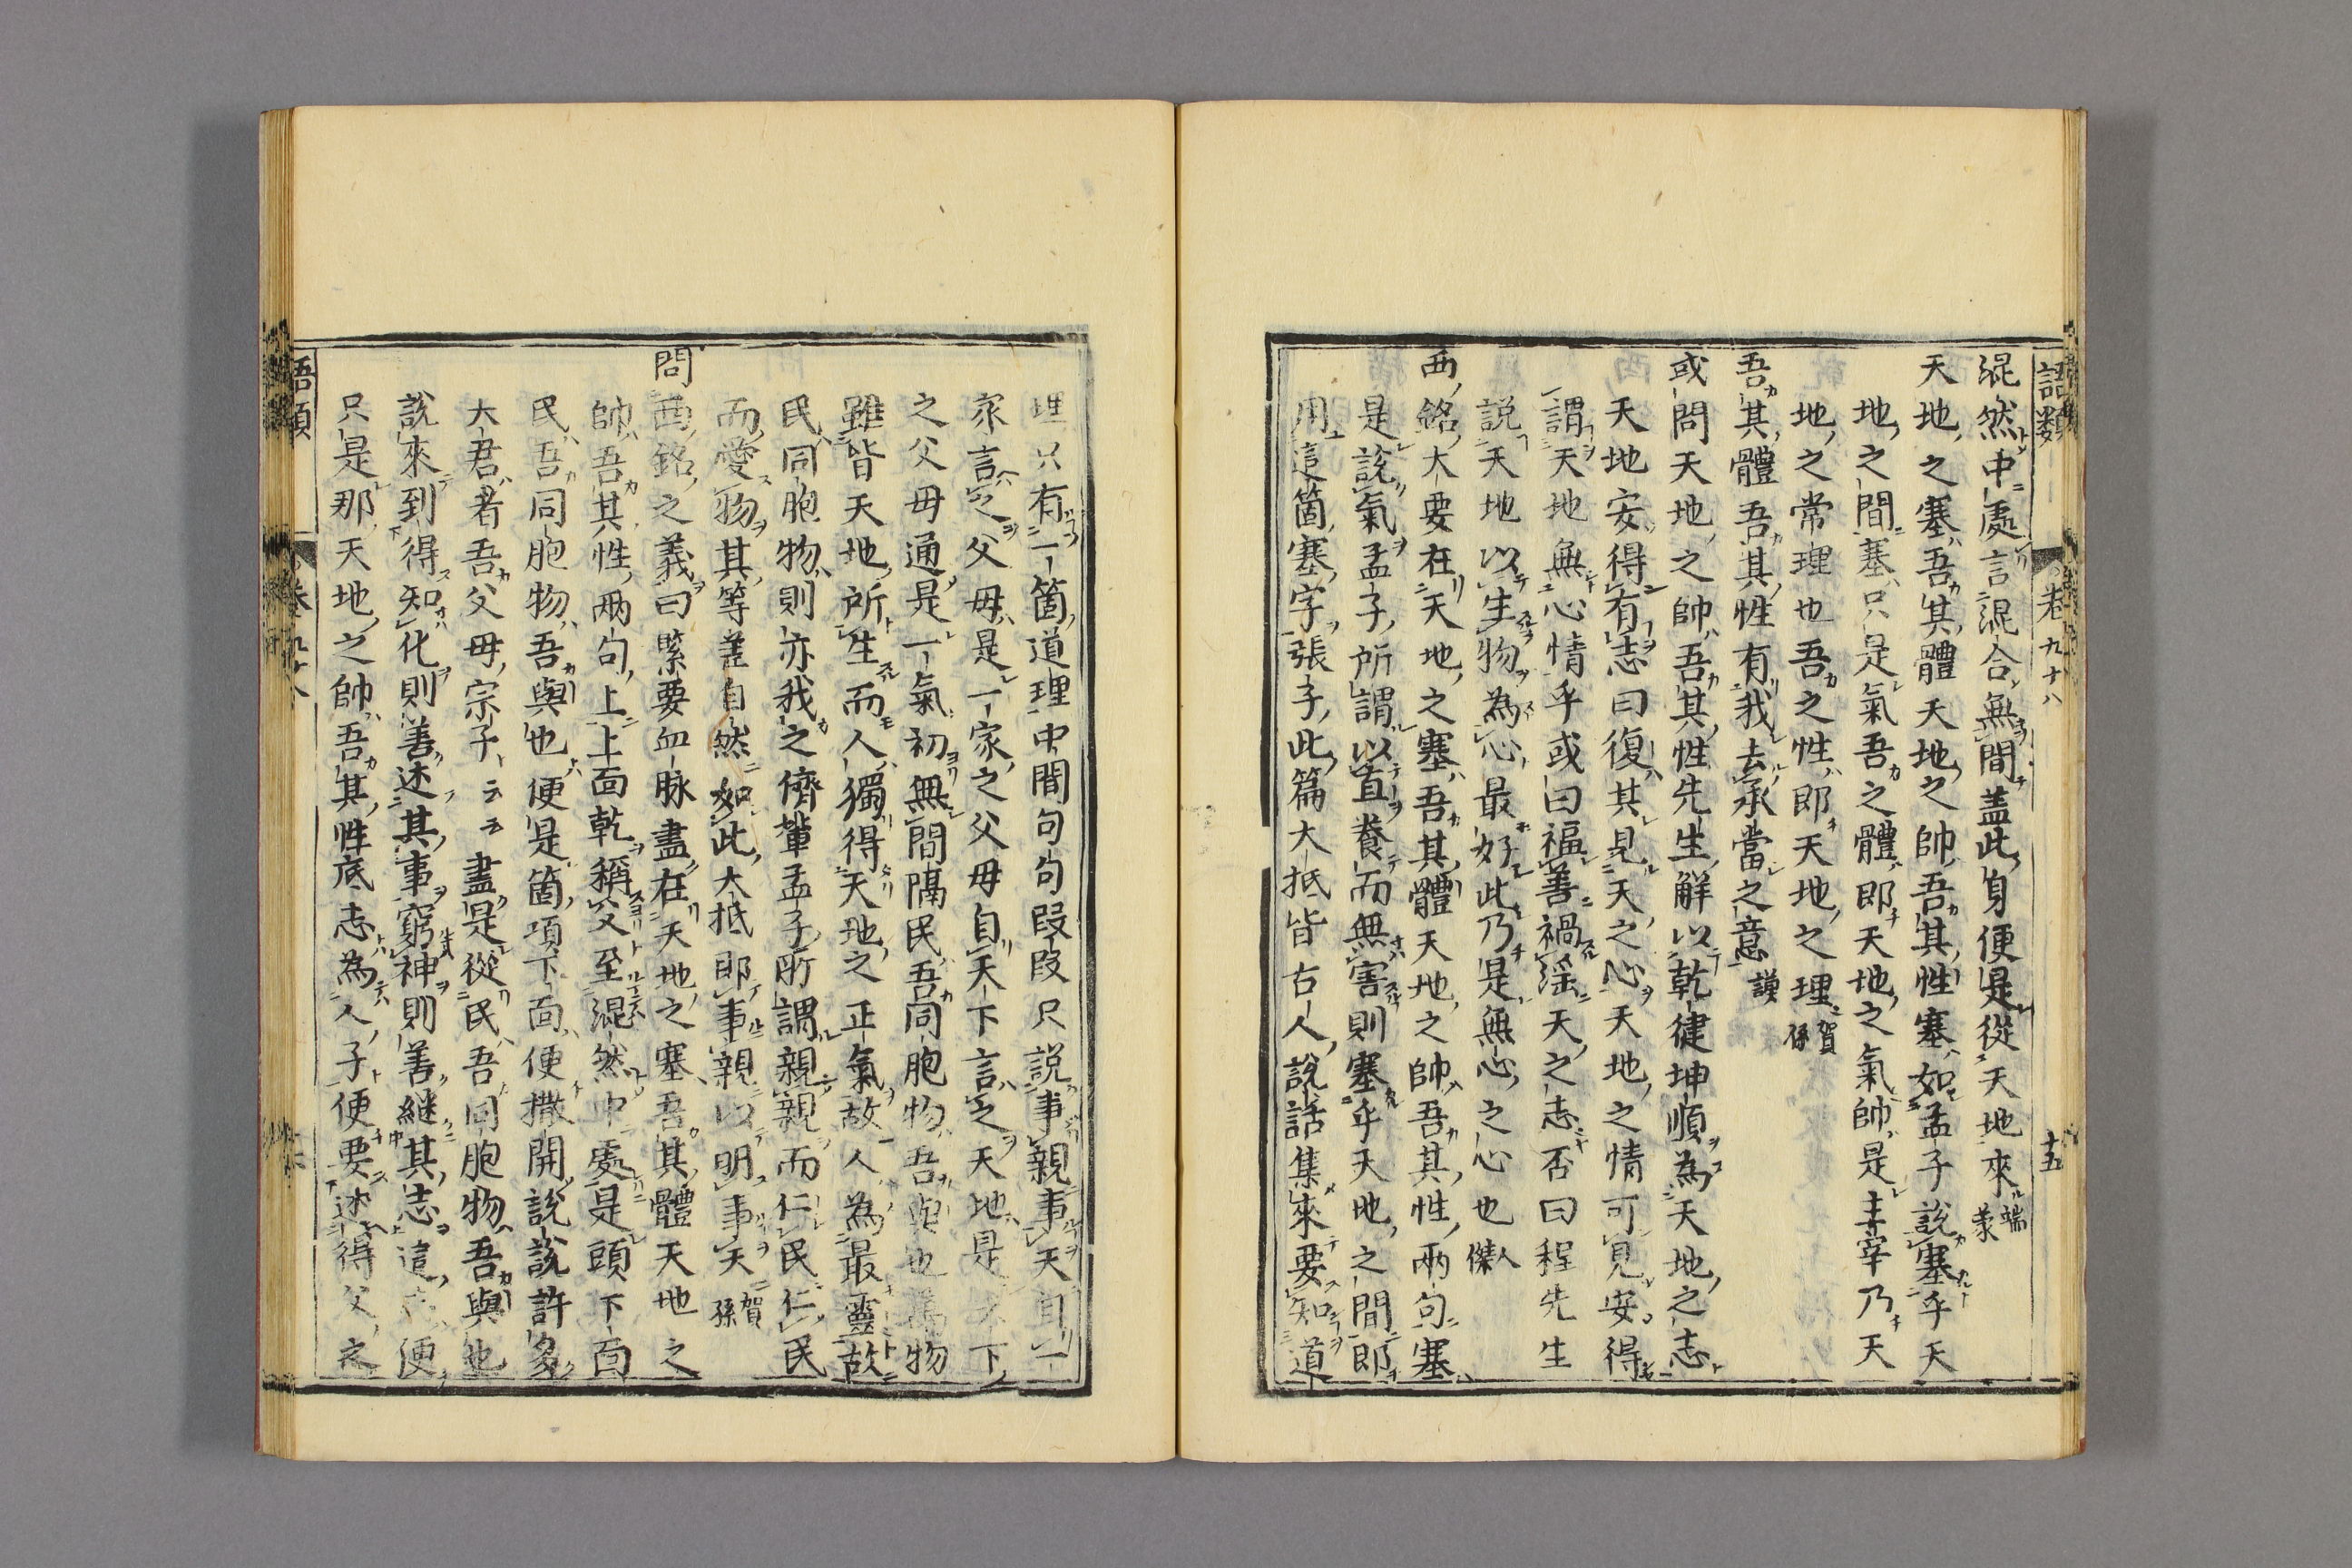 語類
卷九十八
十五
混然中處言混合無間盖此身便是從天地來端蒙
天地之塞吾其體天地之帥吾其性塞如孟子說塞乎天
地之間塞只是氣吾之體即天地之氣帥是主宰乃天
地之常理也吾之性即天地之理賀孫
吾其體吾其性有我去承當之意謨
或問天地之帥吾其性先生解以乾健坤順為天地之志
天地安得有志曰復其見天之心天地之情可見安得
謂天地無心情乎或曰福善禍淫天之志否曰程先生
説天地以生物為心最好此乃是無心之心也人傑
西銘大要在天地之塞吾其體天地之帥吾其性兩句塞
是說氣孟子所謂以直養而無害則塞乎天地之間即
用這箇塞字張子此篇大抵皆古人說話集來要知道
理只有一箇道理中間句句段段只説事親事天自一
家言之父母是一家之父母自天下言之天地是天下
之父母通是一氣初無間隔民吾同胞物吾與也萬物
雖皆天地所生而人獨得天地之正氣故人為最靈故
民同胞物則亦我之儕輩孟子所謂親親而仁民仁民
而愛物其等差自然如此大抵即事親以明事天賀孫
問西銘之義曰緊要血脉盡在天地之塞吾其體天地之
帥吾其性兩句上上面乾稱父至混然中處是頭下面
民吾同胞物吾與也便是箇項下面便撒開說說許多
大君者吾父母宗子云云盡是從民吾同胞物吾與也
說來到得知化則善述其事窮神則善継其志這志便
只是那天地之帥吾其性底志為人子便要述得父之
語類
卷九十八